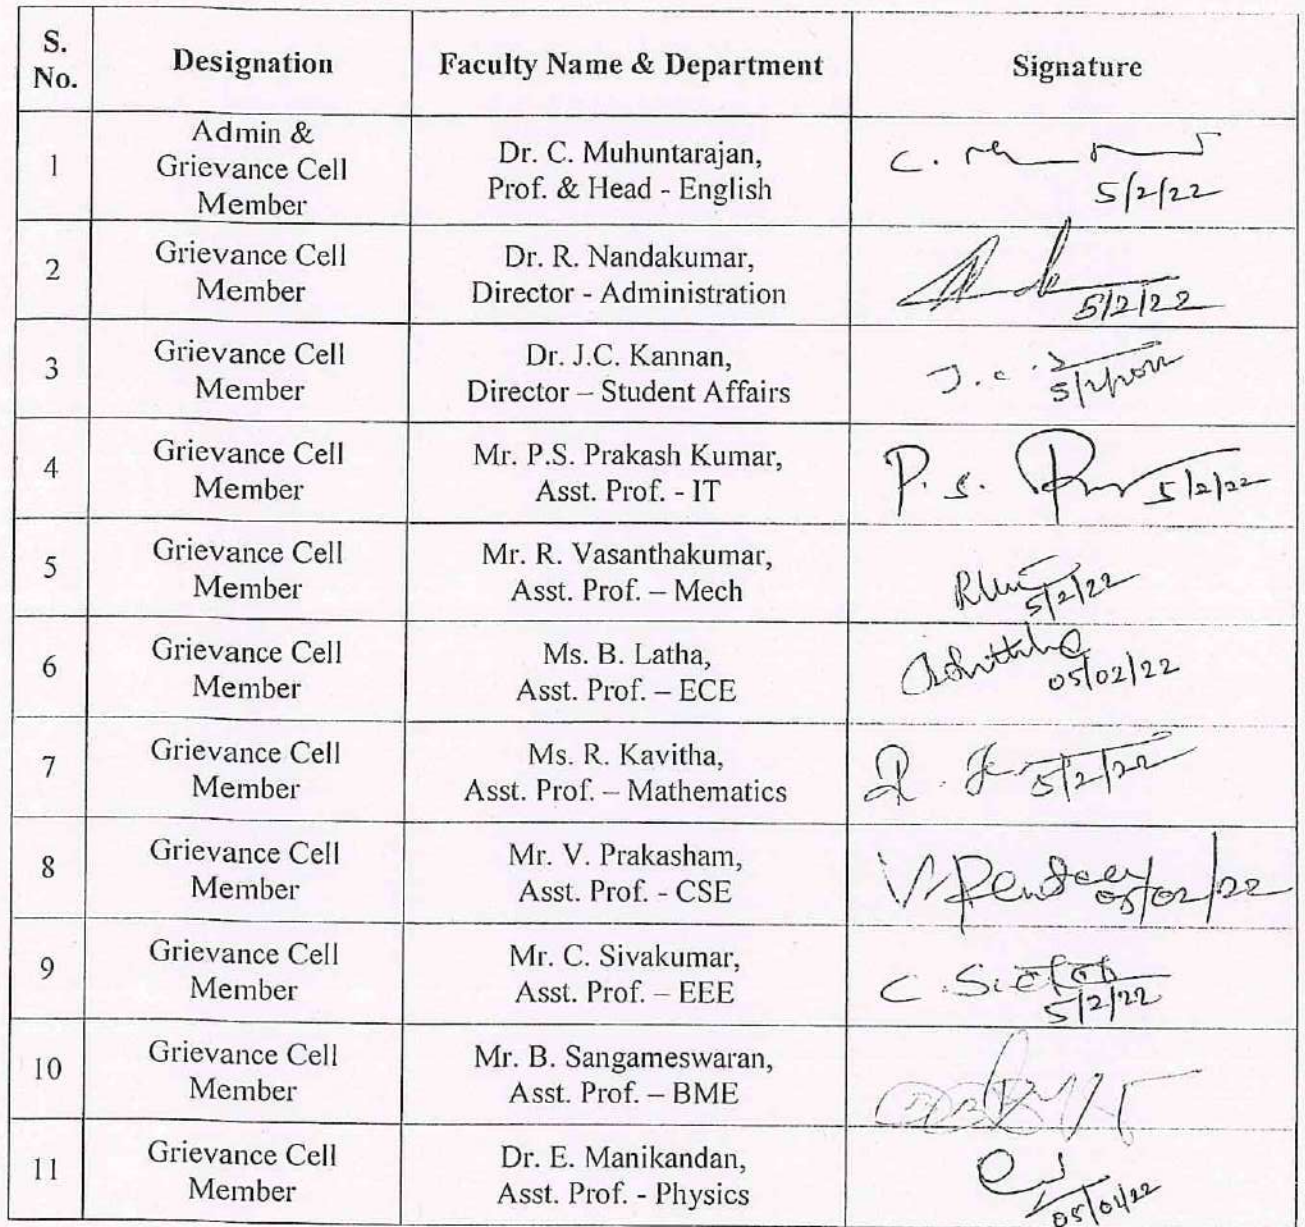 S. No. Designation Faculty Name & Department Signature
1 Admin & Grievance Cell Member Dr. C. Muhuntarajan, Prof. & Head - English C. 5/2/22
2 Grievance Cell Member Dr. R. Nandakumar, Director - Administration 5/2/22
3 Grievance Cell Member Dr. J.C. Kannan, Director – Student Affairs J.C.
4 Grievance Cell Member Mr. P.S. Prakash Kumar, Asst. Prof. - IT P.S. 5/2/22
5 Grievance Cell Member Mr. R. Vasanthakumar, Asst. Prof. – Mech 5/2/22
6 Grievance Cell Member Ms. B. Latha, Asst. Prof. – ECE 05/02/22
7 Grievance Cell Member Ms. R. Kavitha, Asst. Prof. – Mathematics R. 5/2/22
8 Grievance Cell Member Mr. V. Prakasham, Asst. Prof. - CSE V. 05/02/22
9 Grievance Cell Member Mr. C. Sivakumar, Asst. Prof. – EEE C. 5/2/22
10 Grievance Cell Member Mr. B. Sangameswaran, Asst. Prof. – BME
11 Grievance Cell Member Dr. E. Manikandan, Asst. Prof. - Physics